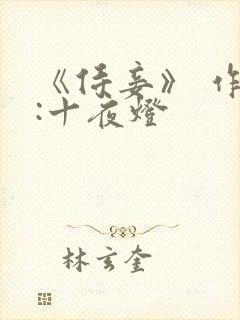 《侍妾》 作
:十夜燈
林玄奎